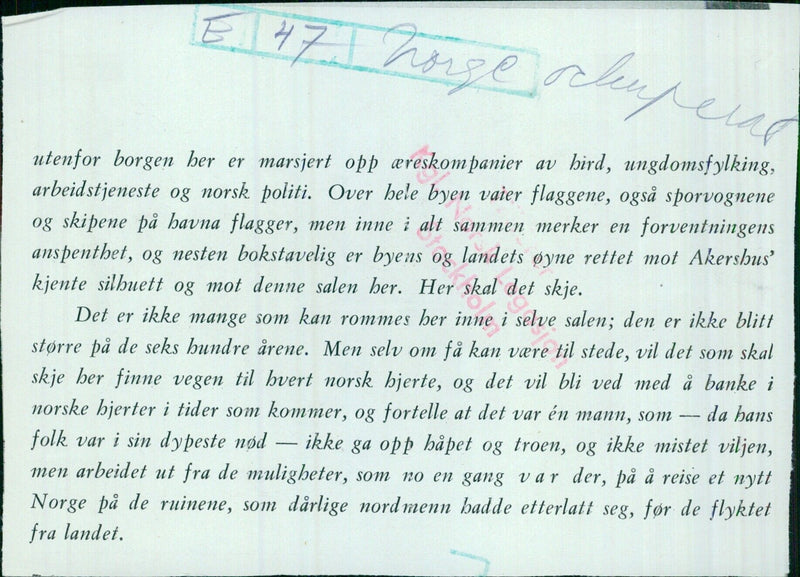 E 47 Norge okkupert
utenfor borgen her er marsjert opp æreskompanier av hird, ungdomsfylking,
arbeidstjeneste og norsk politi. Over hele byen vaier flaggene, også sporvognene
og skipene på havna flagger, men inne i alt sammen merker en forventningens
anspenthet, og nesten bokstavelig er byens og landets øyne rettet mot Akershus'
kjente silhuett og mot denne salen her. Her skal det skje.
Det er ikke mange som kan rommes her inne i selve salen; den er ikke blitt
større på de seks hundre årene. Men selv om få kan være til stede, vil det som skal
skje her finne vegen til hvert norsk hjerte, og det vil bli ved med å banke i
norske hjerter i tider som kommer, og fortelle at det var én mann, som — da hans
folk var i sin dypeste nød — ikke ga opp håpet og troen, og ikke mistet viljen,
men arbeidet ut fra de muligheter, som no en gang var der, på å reise et nytt
Norge på de ruinene, som dårlige nordmenn hadde etterlatt seg, før de flyktet
fra landet.
Kgl. Norsk Legasjon
Stockholm